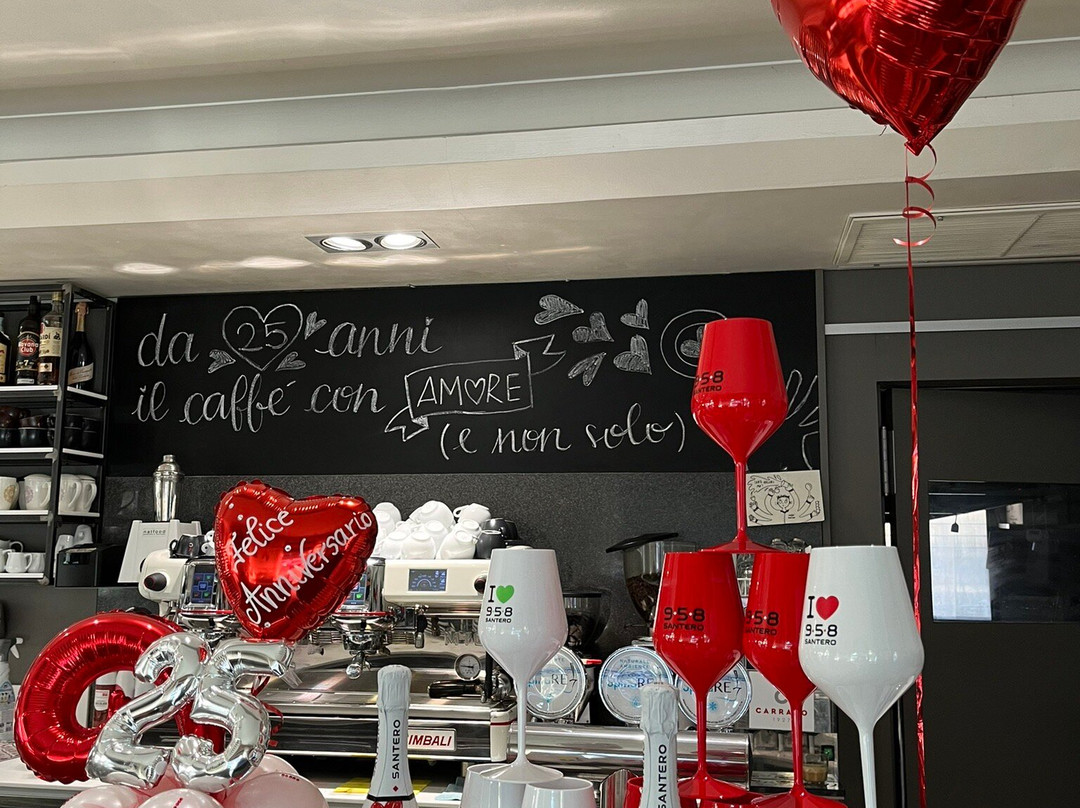 da 25 anni
il caffé con AMORE
(e non solo)
Felice
Anniversario
25
I
9·5·8
SANTERO
9·5·8
SANTERO
9·5·8
SANTERO
9·5·8
SANTERO
I
9·5·8
SANTERO
SANTERO
SANTERO
CIMBALI
Havana
Club